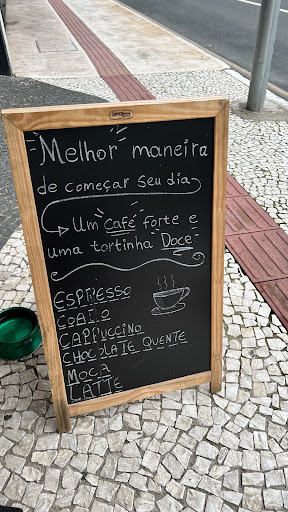 Melhor maneira
de começar seu dia
Um Café forte e
uma tortinha Doce
ESPRESSO
COADO
CAPPUCCINO
CHOCOLATE QUENTE
MOCA
LATTE